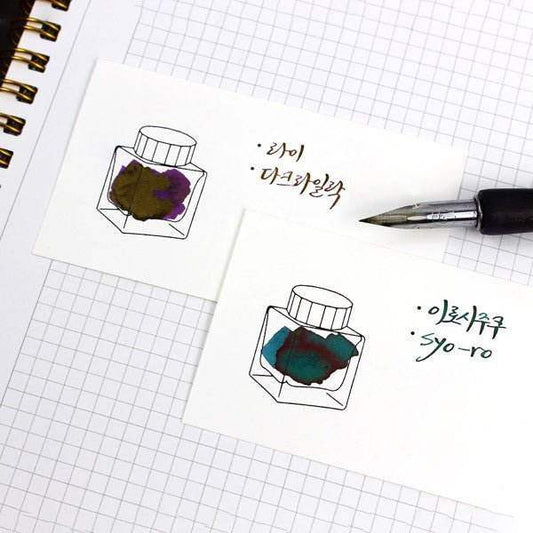 · 라미
· 다크라일락
· 이로시주쿠
· syo-ro